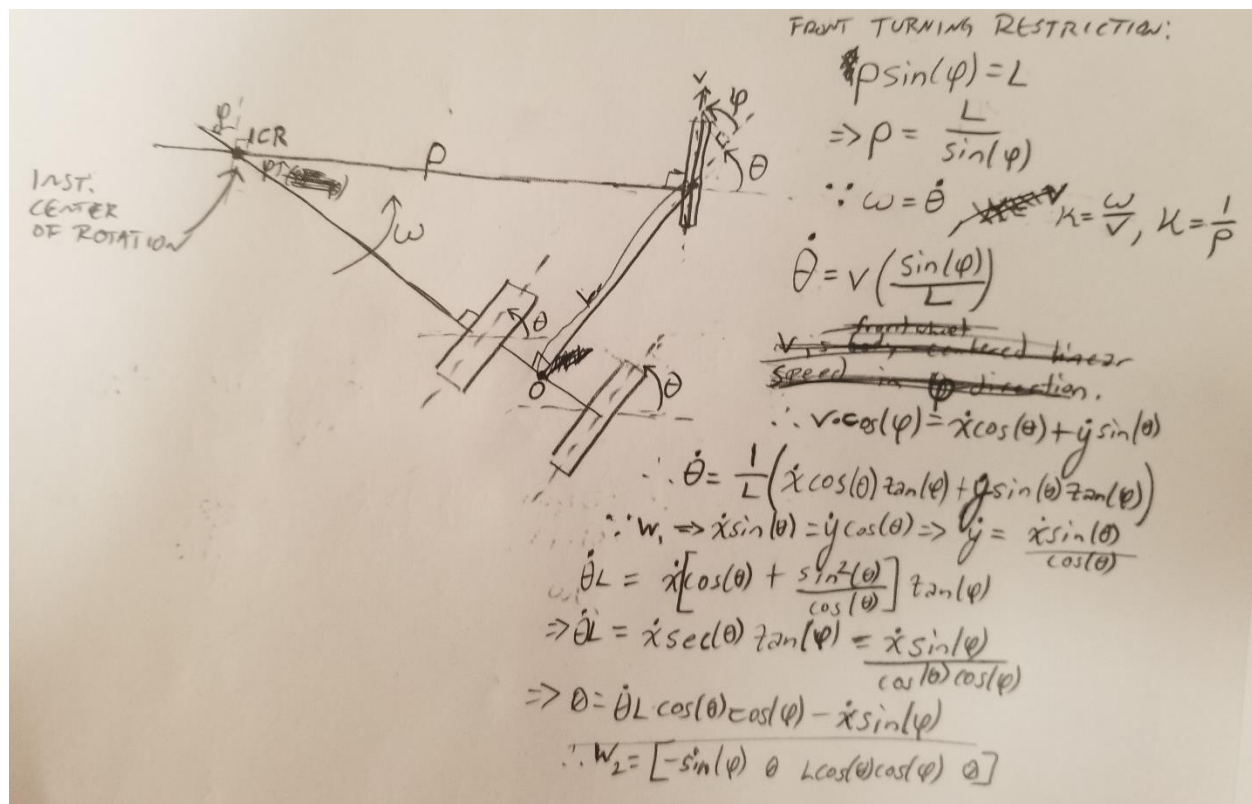 FRONT TURNING RESTRICTION:
ρsin(φ)=L
⇒ρ = L / sin(φ)
∵ ω=θ̇
K=ω/v, K=1/ρ
θ̇ = v(sin(φ)/L)
front wheel
v is body centered linear
speed in φ direction.
∴ v·cos(φ)=ẋcos(θ)+ẏsin(θ)
∴ θ̇ = 1/L(ẋcos(θ)tan(φ)+ẏsin(θ)tan(φ))
∵ W₁ ⇒ ẋsin(θ)=ẏcos(θ)⇒ ẏ = ẋsin(θ)/cos(θ)
θ̇L = ẋ[cos(θ) + sin²(θ)/cos(θ)] tan(φ)
⇒ θ̇L = ẋsec(θ) tan(φ) = ẋsin(φ)/cos(θ)cos(φ)
⇒ 0=θ̇L cos(θ)cos(φ)-ẋsin(φ)
∴ W₂=[-sin(φ) 0 Lcos(θ)cos(φ) 0]
φ
ICR
INST.
CENTER
OF ROTATION
ρ
ω
v
φ
θ
L
θ
O
θ